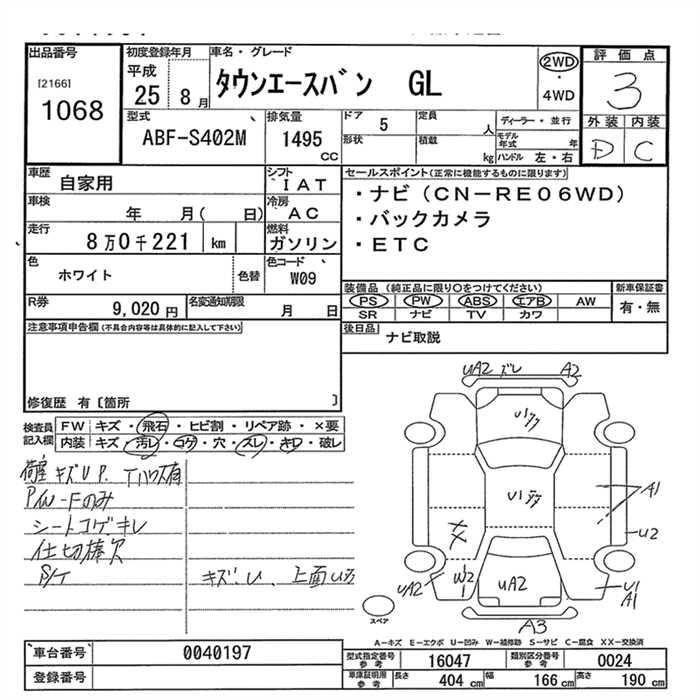 出品番号
[2166]
1068
初度登録年月
平成
25 8月
車名・グレード
タウンエースバン GL
2WD
・
4WD
評価点
3
外装 内装
D C
型式
ABF-S402M
排気量
1495
cc
ドア 5
定員
人
形状
積載
kg
ディーラー・並行
モデル年式 年
ハンドル 左・右
車歴
自家用
シフト
IAT
セールスポイント(正常に機能するものに限ります)
・ナビ(CN-RE06WD)
・バックカメラ
・ETC
車検
年 月( 日)
冷房
AC
走行
8万0千221 km
燃料
ガソリン
色
ホワイト
色替
色コード
W09
装備品 (純正品に限り○をつけてください)
新車保証書
PS PW ABS エアB AW
SR ナビ TV カワ
有・無
R券
9,020円
名変通知期限
月 日
後日品
ナビ取説
注意事項申告欄(不具合内容等は具体的に記入して下さい)
修復歴 有[箇所 ]
検査員
記入欄
FW キズ・飛石・ヒビ割・リペア跡・×要
内装 キズ・汚レ・コゲ・穴・スレ・キレ・破レ
荷室キズUP.
P/W-Fのみ
シートコゲキレ
仕切棒欠
S/T
キズ、U、上面
UA2 ズレ A2
A1
U2
W2
UA2
UA2
U1
A1
A3
スペア
A-キズ E-エクボ U-凹み W-補修跡 S-サビ C-腐食 XX-交換済
車台番号
0040197
登録番号
型式指定番号
参考
16047
類別区分番号
参考
0024
車庫証明用
参考
長さ 404 cm
幅 166 cm
高さ 190 cm